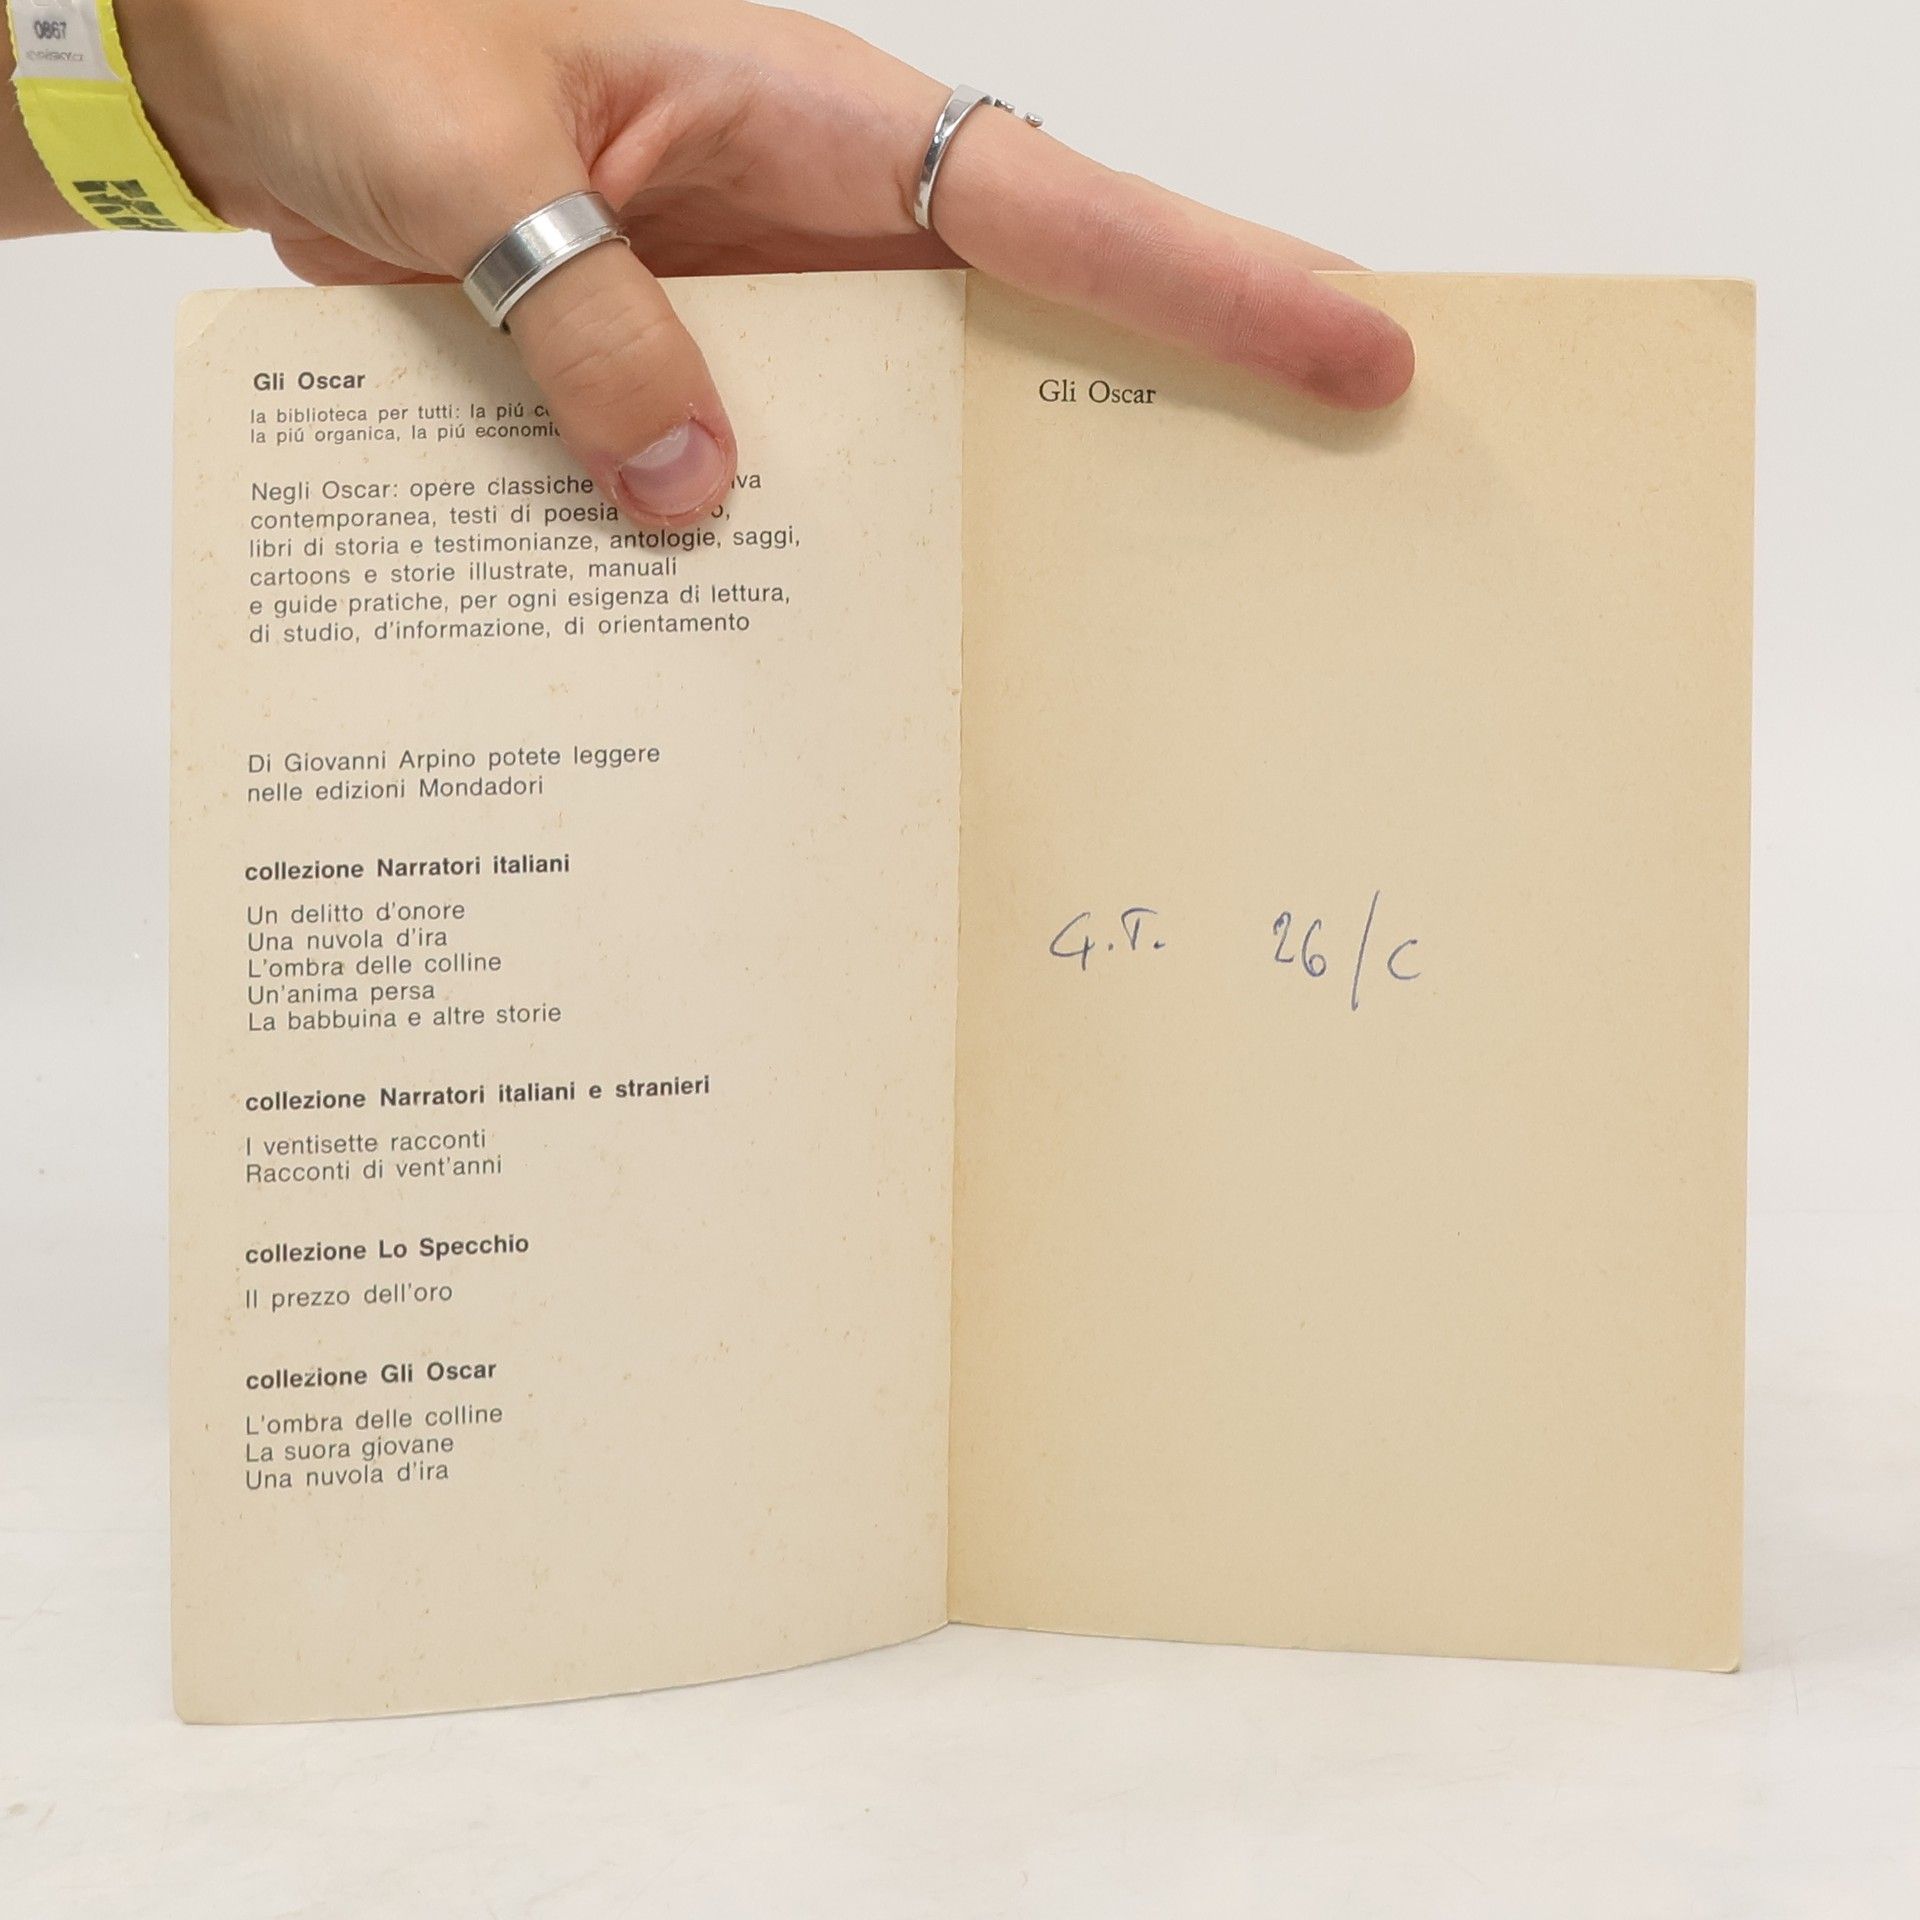 0867
Gli Oscar
la biblioteca per tutti: la piú
la piú organica, la piú
Negli Oscar: opere classiche
contemporanea, testi di poesia
libri di storia e testimonianze, antologie, saggi,
cartoons e storie illustrate, manuali
e guide pratiche, per ogni esigenza di lettura,
di studio, d'informazione, di orientamento
Di Giovanni Arpino potete leggere
nelle edizioni Mondadori
collezione Narratori italiani
Un delitto d'onore
Una nuvola d'ira
L'ombra delle colline
Un'anima persa
La babbuina e altre storie
collezione Narratori italiani e stranieri
I ventisette racconti
Racconti di vent'anni
collezione Lo Specchio
Il prezzo dell'oro
collezione Gli Oscar
L'ombra delle colline
La suora giovane
Una nuvola d'ira
Gli Oscar
G.T. 26/C